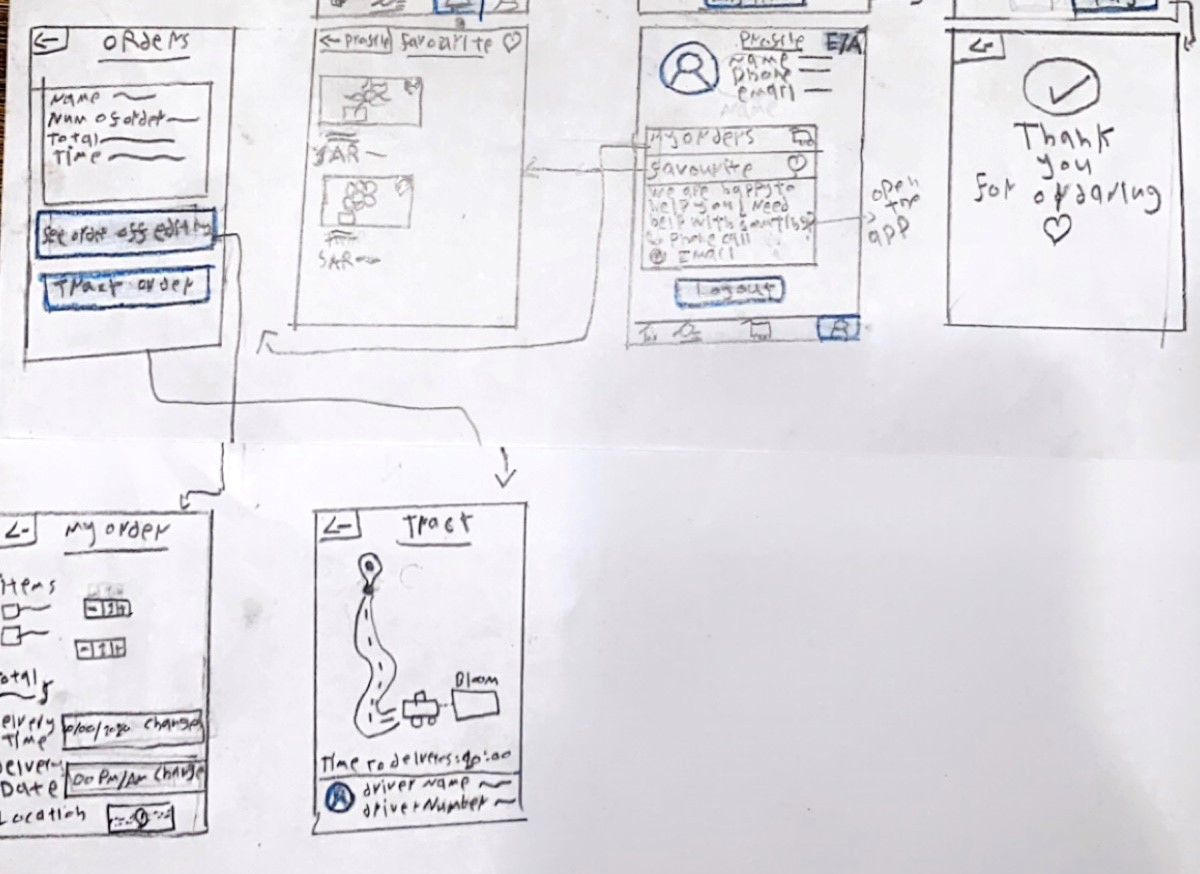 <- orders
Name
Num of order
Total
Time
See order off editing
Track order
<- Profile Favourite
SAR
SAR
Profile E/A
Name
Phone
email
Name
My orders
Favourite
we are happy to
help you need
help with
Phone call
Email
open
the
app
Logout
<-
Thank
you
For ordaring
<- My order
items
- 1 +
- 1 +
Total
Delivery
Time
change
Delivery
Date
00 PM/AM change
Location
<- Track
Bloom
Time to delivers: 90:00
driver name
driver Number